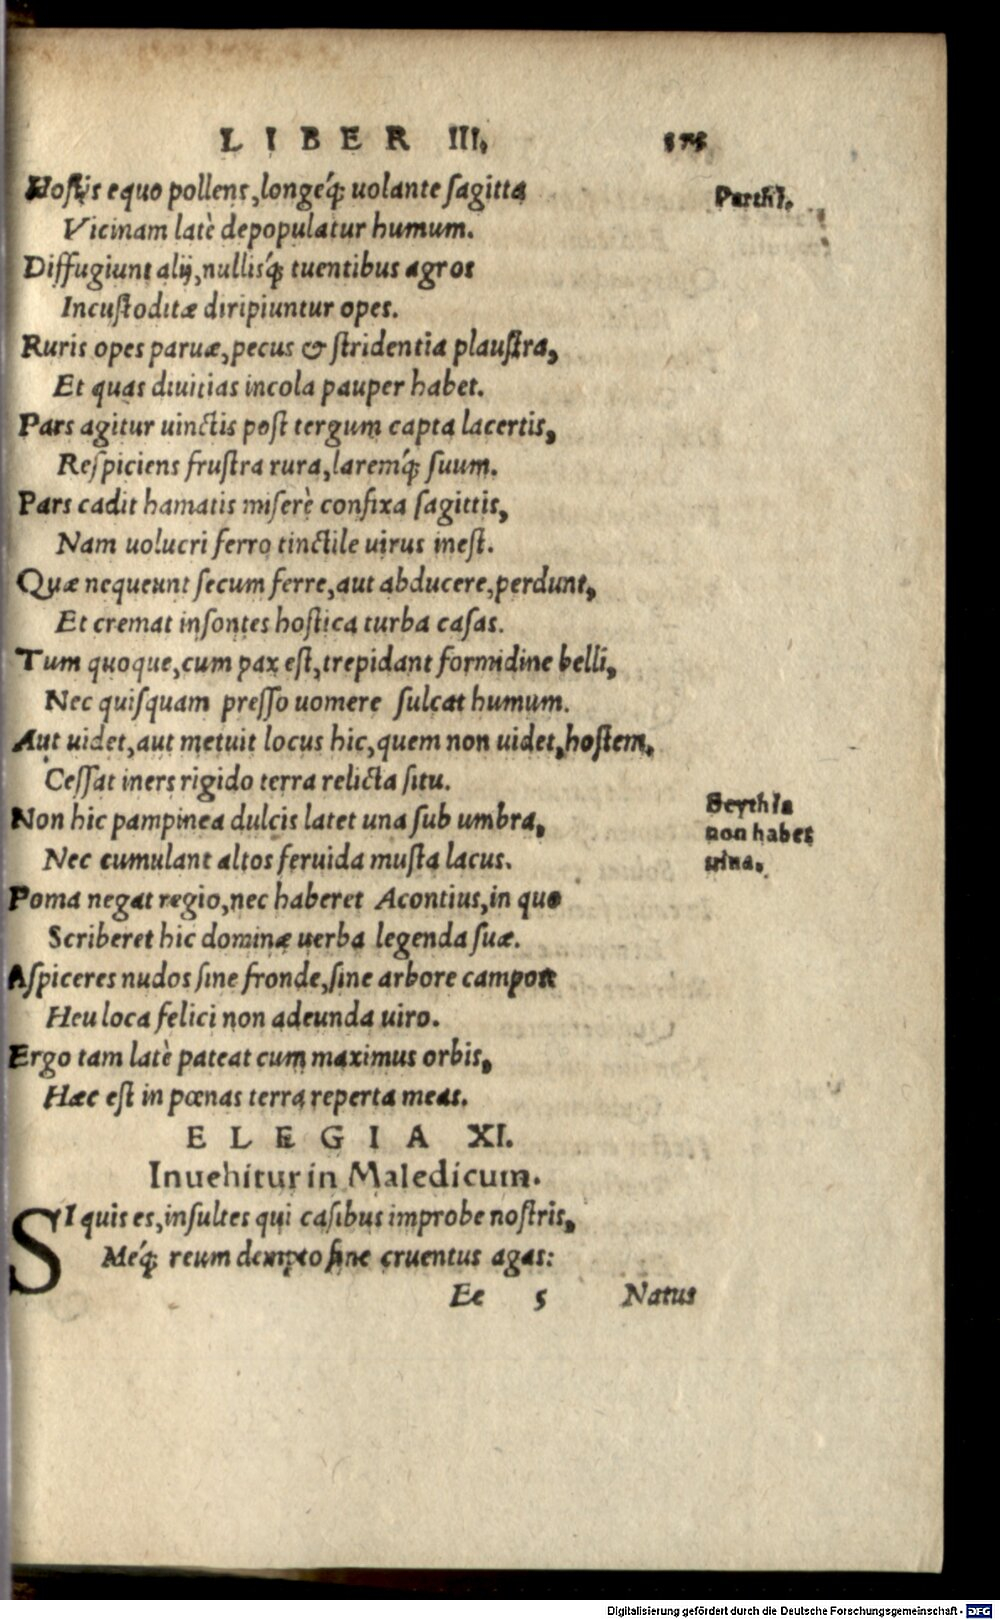 LIBER III.
Hostis equo pollens, longeq́; uolante sagitta
Parthi.
Vicinam latè depopulatur humum.
Diffugiunt alij, nullisq́; tuentibus agros
Incustoditæ diripiuntur opes.
Ruris opes paruæ, pecus & stridentia plaustra,
Et quas diuitias incola pauper habet.
Pars agitur uinctis post tergum capta lacertis,
Respiciens frustra rura, laremq́; suum.
Pars cadit hamatis miserè confixa sagittis,
Nam uolucri ferro tinctile uirus inest.
Quæ nequeunt secum ferre, aut abducere, perdunt,
Et cremat insontes hostica turba casas.
Tum quoque, cum pax est, trepidant formidine belli,
Nec quisquam presso uomere sulcat humum.
Aut uidet, aut metuit locus hic, quem non uidet, hostem,
Cessat iners rigido terra relicta situ.
Non hic pampinea dulcis latet una sub umbra,
Scythia
non habet
uina.
Nec cumulant altos feruida musta lacus.
Poma negat regio, nec haberet Acontius, in quo
Scriberet hic dominæ uerba legenda suæ.
Aspiceres nudos sine fronde, sine arbore campos
Heu loca felici non adeunda uiro.
Ergo tam latè pateat cum maximus orbis,
Hæc est in pœnas terra reperta meas.
ELEGIA XI.
Inuehitur in Maledicum.
SI quis es, insultes qui casibus improbe nostris,
Meq́; reum dempto fine cruentus agas:
Ee 5 Natus
Digitalisierung gefördert durch die Deutsche Forschungsgemeinschaft - DFG